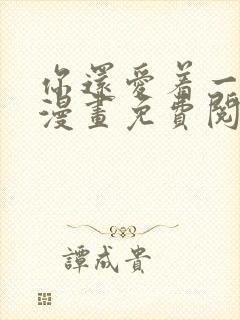 你還愛着一
漫畫免費閱
譚成貴